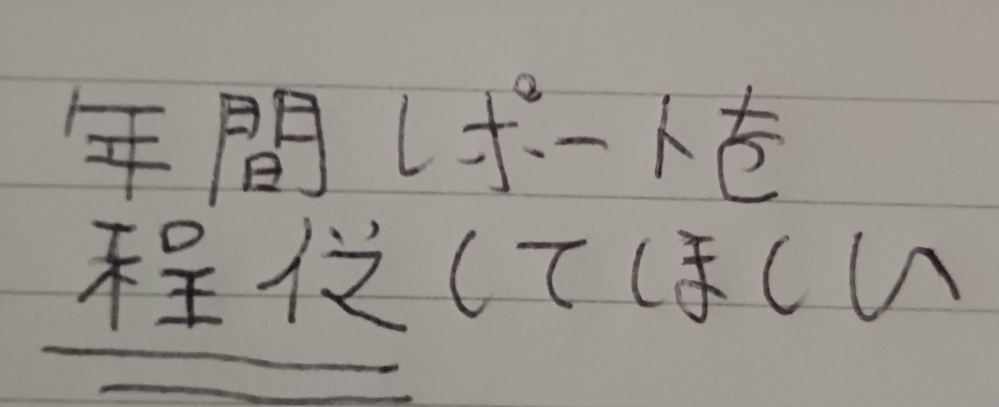 年間レポートを
程従してほしい